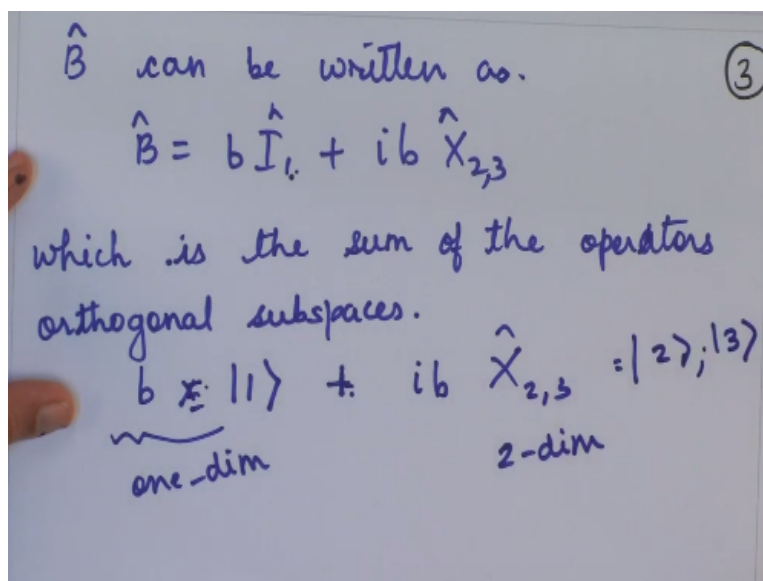 B̂ can be written as.
③
B̂ = b Î₁ + i b X̂₂,₃
which is the sum of the operators
orthogonal subspaces.
b × |1⟩ + i b X̂₂,₃ = |2⟩; |3⟩
one-dim 2-dim